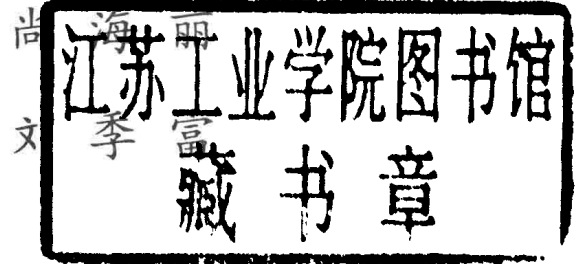 尚海丽
江苏工业学院图书馆
刘季富
藏书章